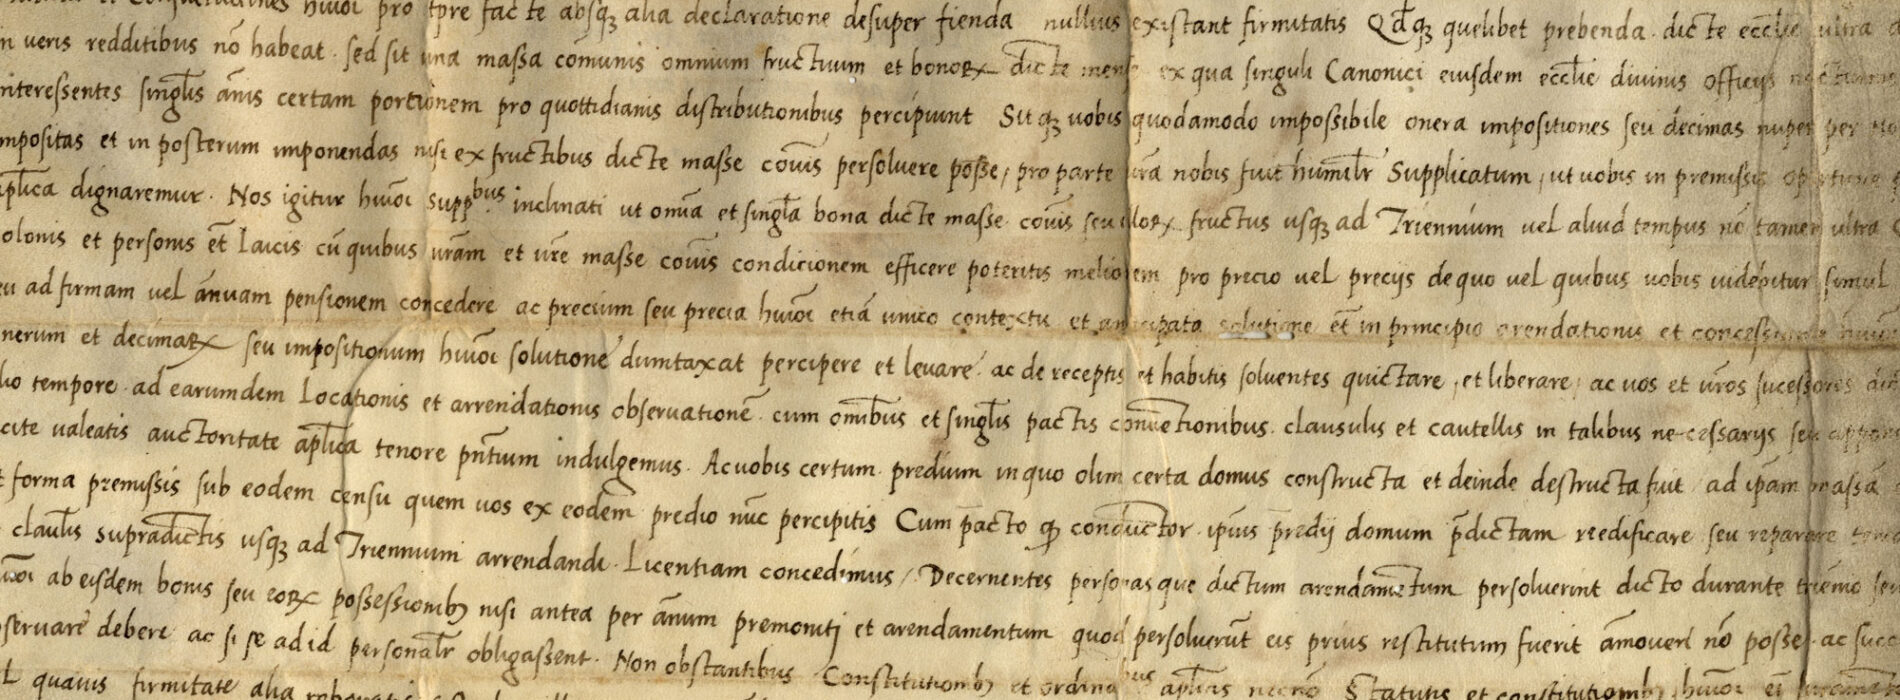 et Consuetudines huiōi pro tpre facte absqꝫ alia declaratione desuper fienda nullius existant firmitatis Qd̄qꝫ quelibet prebenda dicte eccl̄ie ultra
veris redditibus nō habeat. sed sit una massa comunis omnium fructuum et bonoꝝ dicte mense ex qua singuli Canonici eiusdem eccl̄ie diuinis officijs
nteressentes singl̄is ānis certam portionem pro quottidianis distributionibus percipiunt Sitqꝫ uobis quodamodo impossibile onera impositiones seu decimas nuper per
mpositas et in posterum imponendas nisi ex fructibus dicte masse cōuis persoluere posse, pro parte ūra nobis fuit humilr̄ Supplicatum, ut uobis in premissis
apl̄ica dignaremur. Nos igitur huiōi supp^bus inclinati ut omīa et singl̄a bona dicte masse cōuis seu illoꝝ fructus usqꝫ ad Triennium uel aliud tempus nō tamen ultra
olonis et personis ēt Laicis cū quibus ūram et ūre masse cōuis condicionem efficere poteritis meliorem pro precio uel precijs de quo uel quibus uobis uidebitur simul
eu ad firmam uel ānuam pensionem concedere ac precium seu precia huiōi etiā unico contextu et anticipata solutione ēt in principio arendationis et concessionis huiōi
nerum et decimaꝝ seu impositionum huiōi solutionē dumtaxat percipere et leuare. ac de receptis et habitis soluentes quictare, et liberare, ac uos et ūros sucessores
lio tempore. ad earumdem Locationis et arrendationis obseruationē. cum omībus et singl̄is pactis conuētionibus. clausulis et cautellis in talibus necessarijs seu
cite ualeatis auctoritate apl̄ica tenore pn̄tium indulgemus. Ac uobis certum predium in quo olim certa domus constructa et deinde destructa fuit ad ip̄am massā
t forma premissis sub eodem censu quem uos ex eodem predio nūc percipitis Cum pacto ꝙ conductor ipsius predij domum p̄dictam reedificare seu reparare
claul̄is supradictis usqꝫ ad Triennium arrendandi. Licentiam concedimus, Decernentes personas que dictum arendamentum persoluerint dicto durante triēnio seu
huiōi ab eisdem bonis seu eoꝝ possessionibꝫ nisi antea per ānum premoniti et arendamentum quod persoluerūt eis prius restitutum fuerit āmoueri nō posse. ac succ
seruare debere ac si se ad id personalr̄ obligassent. Non obstantibus Constitutionibꝫ et ordina^bus apl̄icis necnō Statutis et constitutionibꝫ huiōi
quauis firmitate alia roboratis